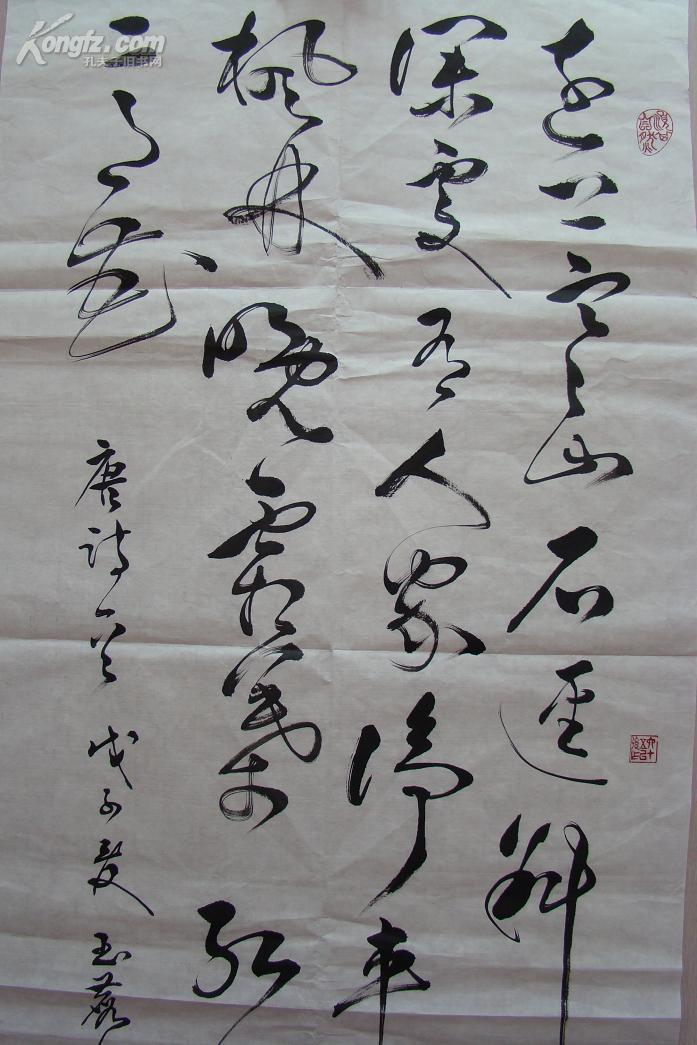 Kongfz.com
孔夫子旧书网
遠上寒山石迳斜
深處有人家停車
楓林晚霜葉紅
二月花
唐詩一首 戊子夏 玉燕